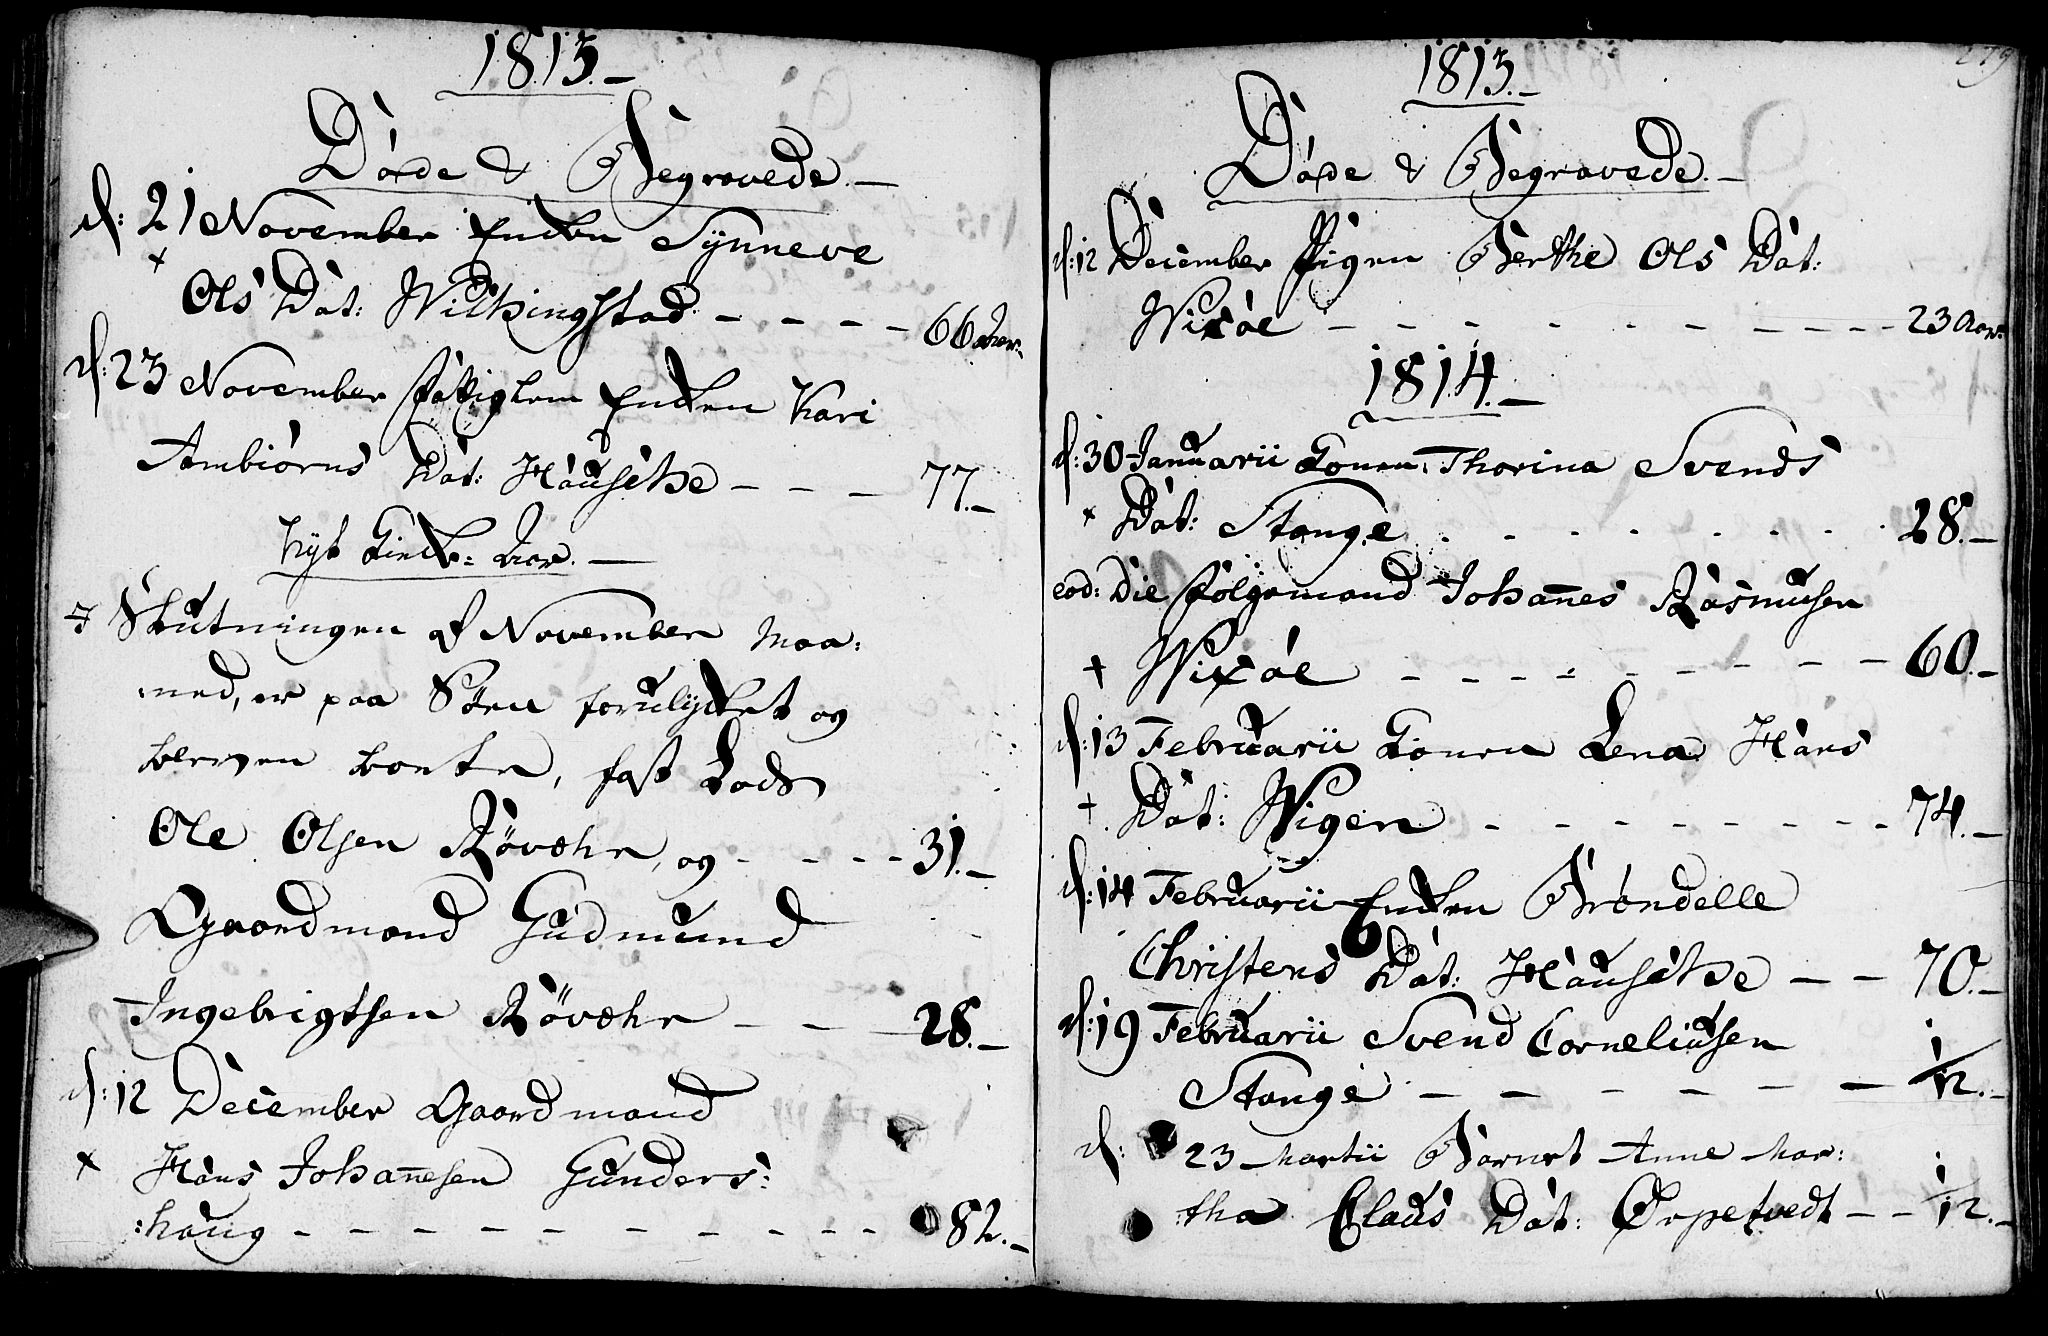 1813.
Døde & Begravede.
d: 21 November Enken Synneve
Ols Dat: Wilkingstad - - - - 66 Aar.
d: 23 November Fattiglem Enken Kari
Ambiörns Dat: Hausche - - - 77.
Nyt Kirke: Aar.
I Slutningen af November Maa:
:ned, er paa Söen forulykket og
bleven borte, fast Lods
Ole Olsen Rövæhr, og - - - - 31.
Gaardmand Gudmund
Ingebrigtsen Rövæhr - - - 28.
d: 12 December Gaardmand
Hans Johañesen Gunders:
:haug - - - - - - - - - - 82.
279
1813.
Døde & Begravede.
d: 12 December Pigen Berthe Ols Dat:
Wixøe - - - - - - - - - - 23 Aar.
1814.
d: 30 Januarii Konen Thorina Svends
Dat: Stange - - - - - - - 28.
eod: Die Følgemand Johañes Rasmusen
Wixøe - - - - - - - - 60.
d: 13 Februarii Konen Lena Hans
Dat: Wigen - - - - - - - - - 74.
d: 14 Februarii Enken Brøndelle
Christens Dat: Hausche - - 70.
d: 19 Februarii Svend Corneliusen
Stange - - - - - - 1/12.
d: 23 Martii Barnet Anne Mar:
:tha Claus Dat: Ørpetvedt - - 1/12.